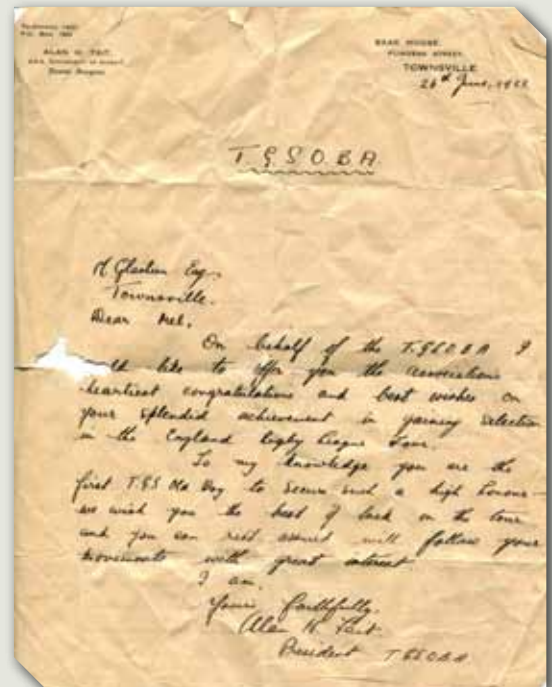 ALAN H. TAIT,
Dental Surgeon
TOWNSVILLE
26th June,
T.G.S.O.B.A.
Esq.
Townsville.
Dear Mel,
On behalf of the T.G.S.O.B.A I
like to offer you the associations
heartiest congratulations and best wishes on
your splendid achievement in gaining selection
in the England Rugby League Tour.
To my knowledge you are the
first T.G.S Old Boy to secure such a high honour
we wish you the best of luck on the tour
and you can rest assured will follow your
movements with great interest
I am,
Yours faithfully,
Alan H. Tait.
President T.G.S.O.B.A.